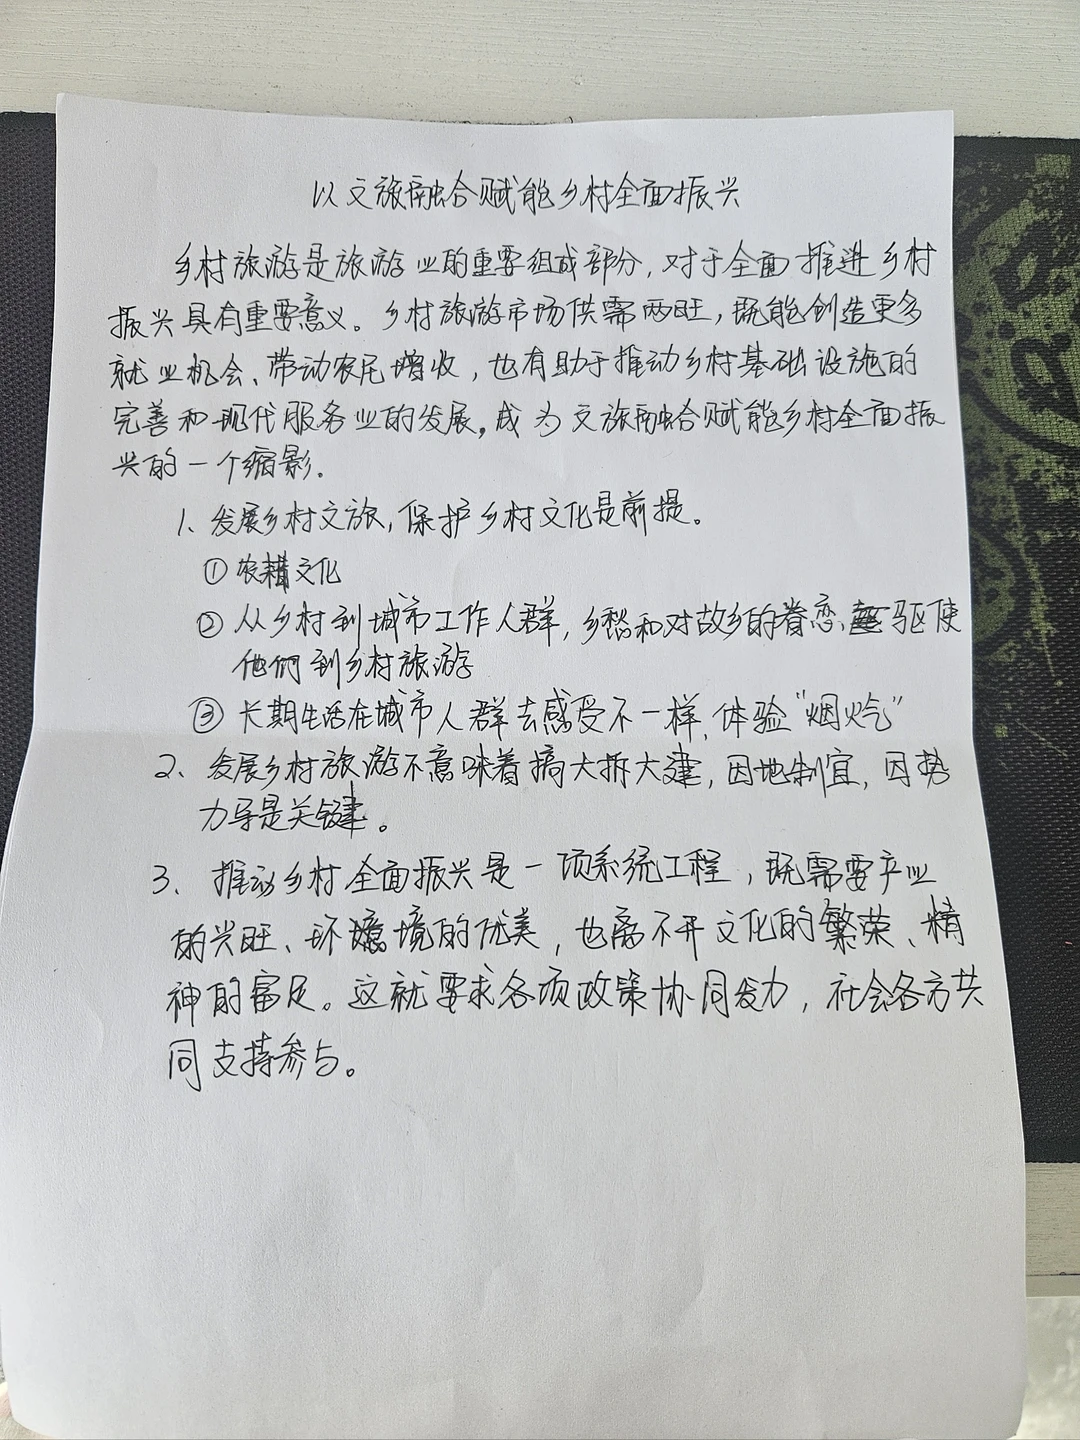 以文旅融合赋能乡村全面振兴
乡村旅游是旅游业的重要组成部分,对于全面推进乡村
振兴具有重要意义。乡村旅游市场供需两旺,既能创造更多
就业机会、带动农民增收,也有助于推动乡村基础设施的
完善和现代服务业的发展,成为文旅融合赋能乡村全面振
兴的一个缩影.
1、发展乡村文旅,保护乡村文化是前提。
① 农耕文化
② 从乡村到城市工作人群,乡愁和对故乡的眷恋、驱使
他们到乡村旅游
③ 长期生活在城市人群去感受不一样,体验“烟火气”
2、发展乡村旅游不意味着搞大拆大建,因地制宜,因势
力导是关键。
3、推动乡村全面振兴是一项系统工程,既需要产业
的兴旺、环境的优美,也离不开文化的繁荣、精
神的富足。这就要求各项政策协同发力,社会各方共
同支持参与。